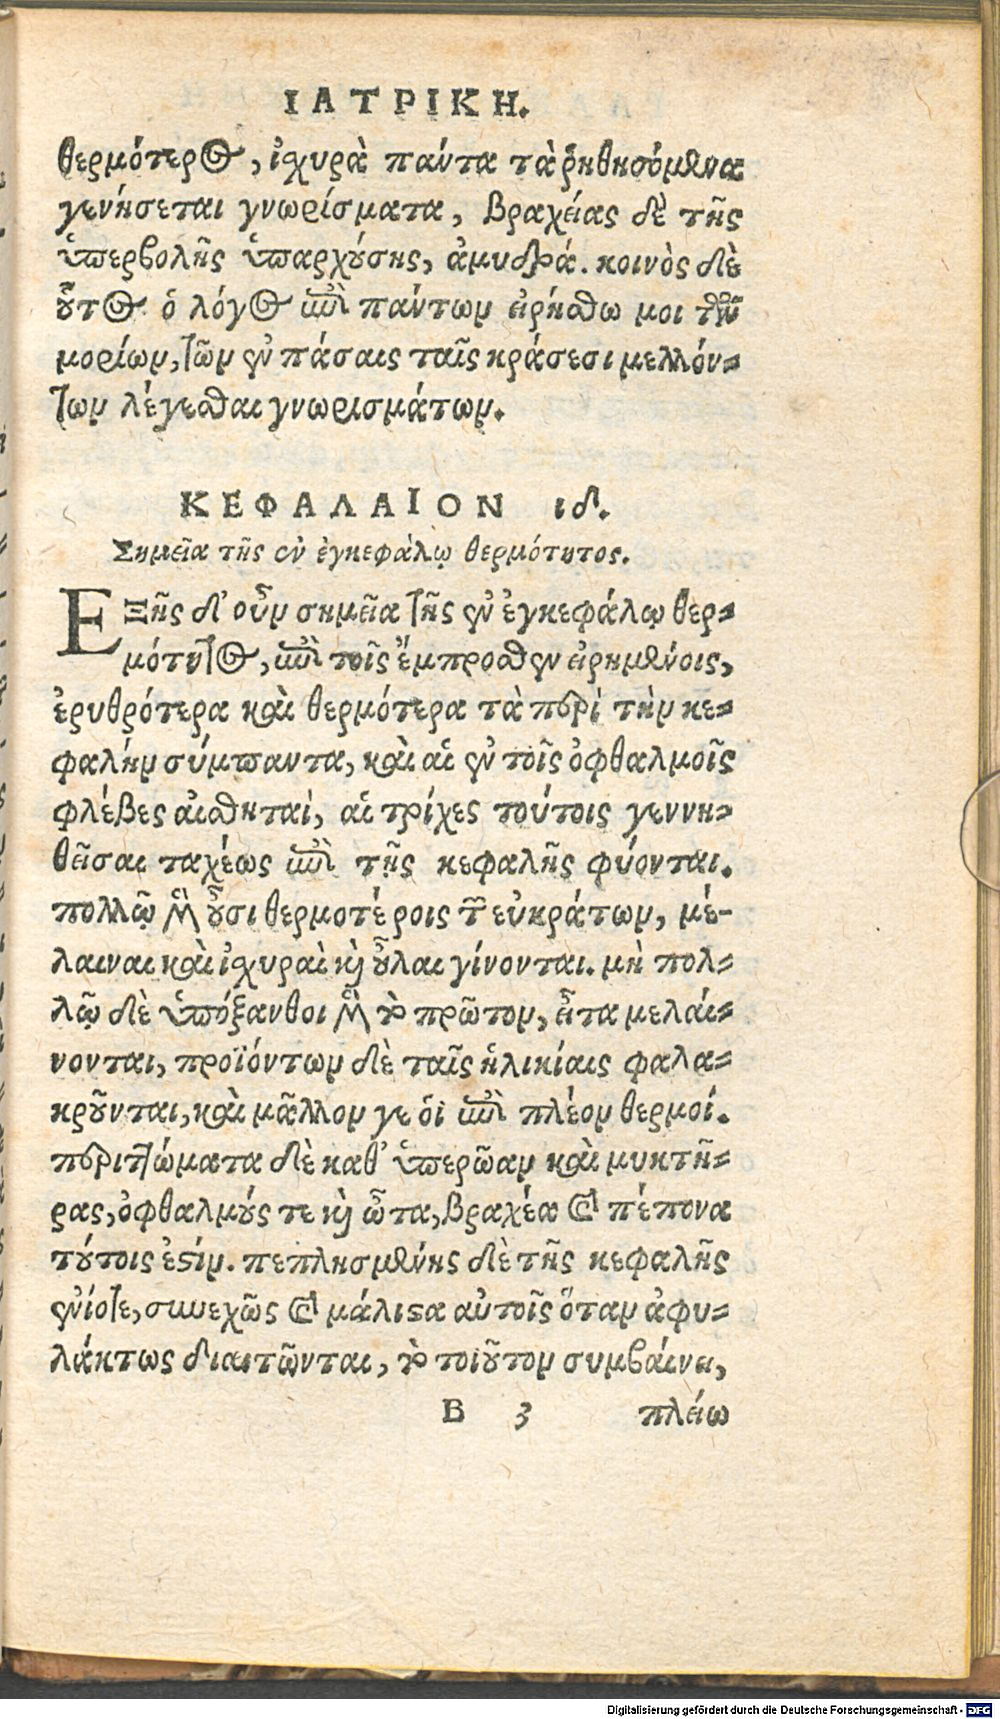 ΙΑΤΡΙΚΗ.
θερμότερος, ἰσχυρὰ πάντα τὰ ῥηθησόμενα
γενήσεται γνωρίσματα, βραχείας δὲ τῆς
ὑπερβολῆς ὑπαρχούσης, ἀμυδρά. κοινὸς δὲ
οὗτος ὁ λόγος ἐπὶ πάντων εἰρήσθω μοι τῶν
μορίων, τῶν ἐν πάσαις ταῖς κράσεσι μελλόν-
των λέγεσθαι γνωρισμάτων.
ΚΕΦΑΛΑΙΟΝ ιδ.
Σημεῖα τῆς ἐν ἐγκεφάλῳ θερμότητος.
ΕΞῆς δ' οὖν σημεῖα τῆς ἐν ἐγκεφάλῳ θερ-
μότητος, ἐπὶ τοῖς ἔμπροσθεν εἰρημένοις,
ἐρυθρότερα καὶ θερμότερα τὰ περὶ τὴν κε-
φαλὴν σύμπαντα, καὶ αἱ ἐν τοῖς ὀφθαλμοῖς
φλέβες αἰσθηταὶ, αἱ τρίχες τούτοις γεννη-
θεῖσαι ταχέως ἐπὶ τῆς κεφαλῆς φύονται.
πολλῷ μὲν οὖσι θερμοτέροις τῶν εὐκράτων, μέ-
λαιναι καὶ ἰσχυραὶ καὶ οὖλαι γίνονται. μὴ πολ-
λῷ δὲ ὑπόξανθοι μὲν τὸ πρῶτον, εἶτα μελαί-
νονται, προϊόντων δὲ ταῖς ἡλικίαις φαλα-
κροῦνται, καὶ μᾶλλον γε οἱ ἐπὶ πλέον θερμοί.
περιττώματα δὲ καθ' ὑπερῶαν καὶ μυκτῆ-
ρας, ὀφθαλμούς τε καὶ ὦτα, βραχέα καὶ πέπονα
τούτοις ἐστίν. πεπλησμένης δὲ τῆς κεφαλῆς
ἐνίοτε, συνεχῶς καὶ μάλιστα αὐτοῖς ὅταν ἀφυ-
λάκτως διαιτῶνται, τὸ τοιοῦτον συμβαίνει,
Β 3 πλείω
Digitalisierung gefördert durch die Deutsche Forschungsgemeinschaft - DFG